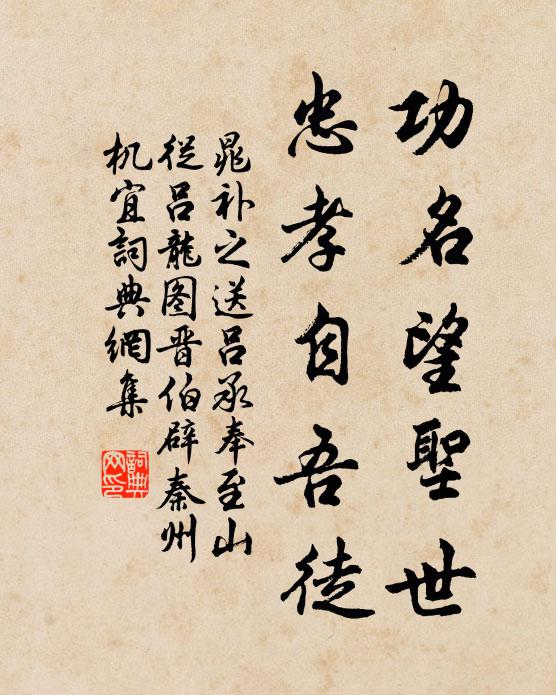 功名望聖世
忠孝自吾徒
晁补之送吕承奉至山
從吕龍图晋伯辟秦州
机宜詞典網集
詞典
网印